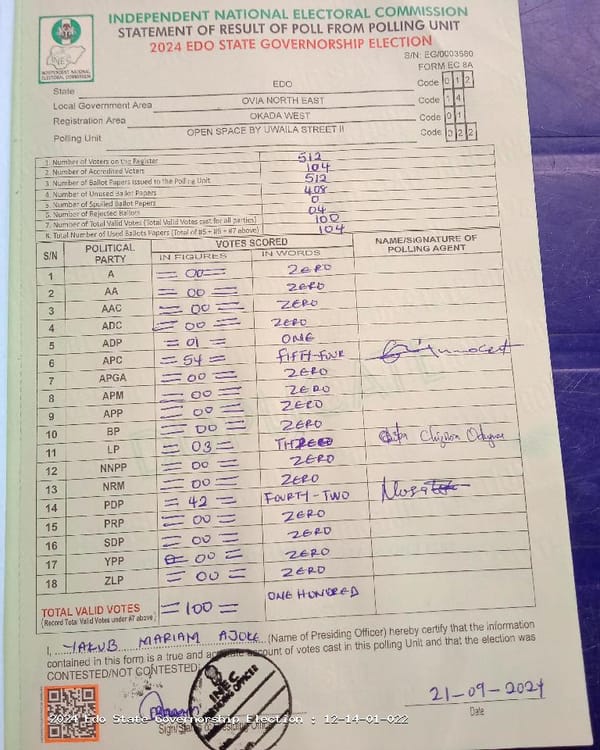 INDEPENDENT NATIONAL ELECTORAL COMMISSION
STATEMENT OF RESULT OF POLL FROM POLLING UNIT
2024 EDO STATE GOVERNORSHIP ELECTION
S/N: EG/0003580
FORM EC 8A
INEC
INDEPENDENT NATIONAL ELECTORAL COMMISSION
State EDO Code 012
Local Government Area OVIA NORTH EAST Code 14
Registration Area OKADA WEST Code 01
Polling Unit OPEN SPACE BY UWAILA STREET II Code 022
1. Number of Voters on the Register 512
2. Number of Accredited Voters 104
3. Number of Ballot Papers Issued to the Polling Unit 512
4. Number of Unused Ballot Papers 408
5. Number of Spoiled Ballot Papers 0
6. Number of Rejected Ballots 04
7. Number of Total Valid Votes (Total Valid Votes cast for all parties) 100
8. Total Number of Used Ballots Papers (Total of #5 + #6 + #7 above) 104
S/N POLITICAL PARTY VOTES SCORED NAME/SIGNATURE OF POLLING AGENT
IN FIGURES IN WORDS
1 A =00= ZERO
2 AA =00= ZERO
3 AAC =00= ZERO
4 ADC =00= ZERO
5 ADP =01= ONE
6 APC =54= FIFTY-FOUR
7 APGA =00= ZERO
8 APM =00= ZERO
9 APP =00= ZERO
10 BP =00= ZERO
11 LP =03= THREE
12 NNPP =00= ZERO
13 NRM =00= ZERO
14 PDP =42= FOURTY-TWO
15 PRP =00= ZERO
16 SDP =00= ZERO
17 YPP =00= ZERO
18 ZLP =00= ZERO
TOTAL VALID VOTES =100= ONE HUNDRED
(Record Total Valid Votes under #7 above)
I, YAKUB MARIAM AJOKE (Name of Presiding Officer) hereby certify that the information
contained in this form is a true and accurate account of votes cast in this polling Unit and that the election was
CONTESTED/NOT CONTESTED.
INEC
21-09-2024
Date
2024 Edo State Governorship Election : 12-14-01-022